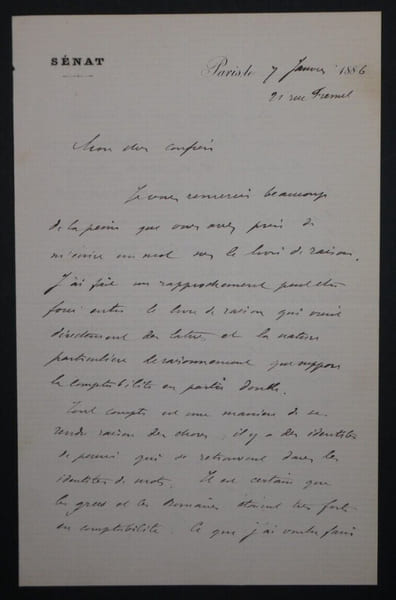 SÉNAT
Paris, le 7 Janvier 1886
21 rue
Mon cher confrère
Je vous remercie beaucoup
de la peine que vous avez prise de
m'écrire un mot sur le livre de raison.
J'ai fait un rapprochement peut etre
forcé entre le livre de raison qui vient
directement du latin, et la nature
particulière de raisonnement que suppose
la comptabilité en partie double.
Tout compte est une manière de se
rendre raison des choses, il y a des identités
de pensée qui se retrouvent dans les
identités de mots. Il est certain que
les grecs et les Romains étaient très forts
en comptabilité. Ce que j'ai voulu faire